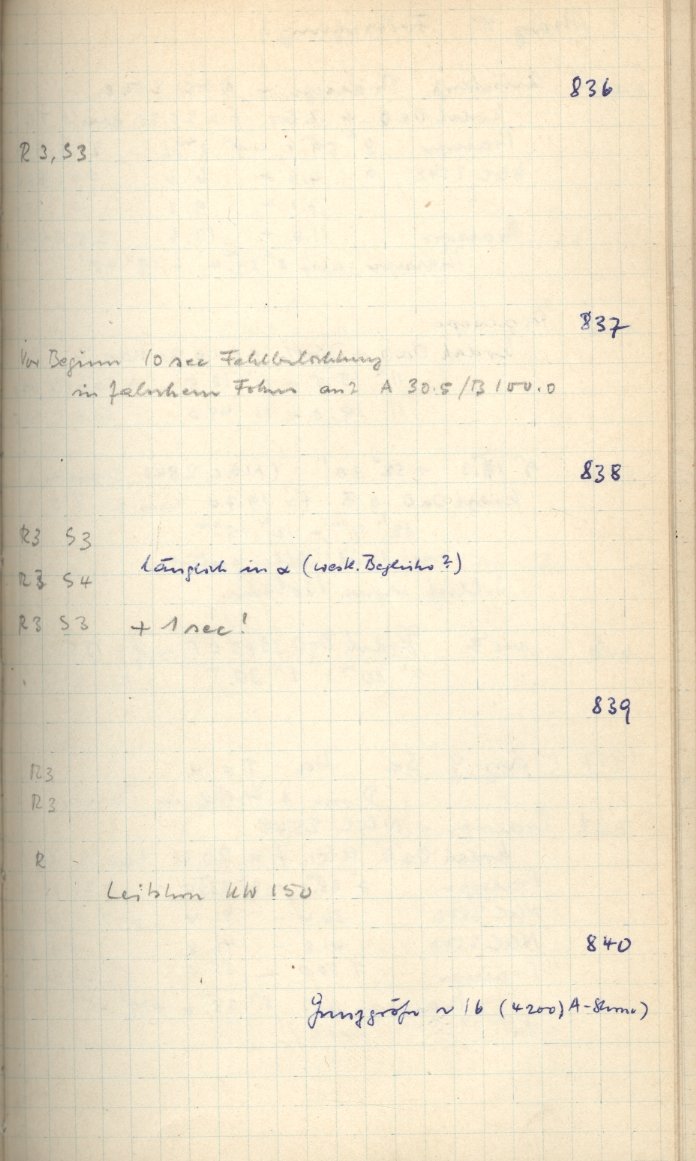 836
R 3, S3
837
Vor Beginn 10 sec Fehlbelichtung
in falschem Fokus auf A 30.5/B 100.0
838
R3 S3
Länglich in α (westl. Begleiter?)
R3 S4
R3 S3 + 1 sec!
839
R3
R3
R
Leitstern KW 150
840
Grenzgröße ~ 16 (4200) A-Sterne)